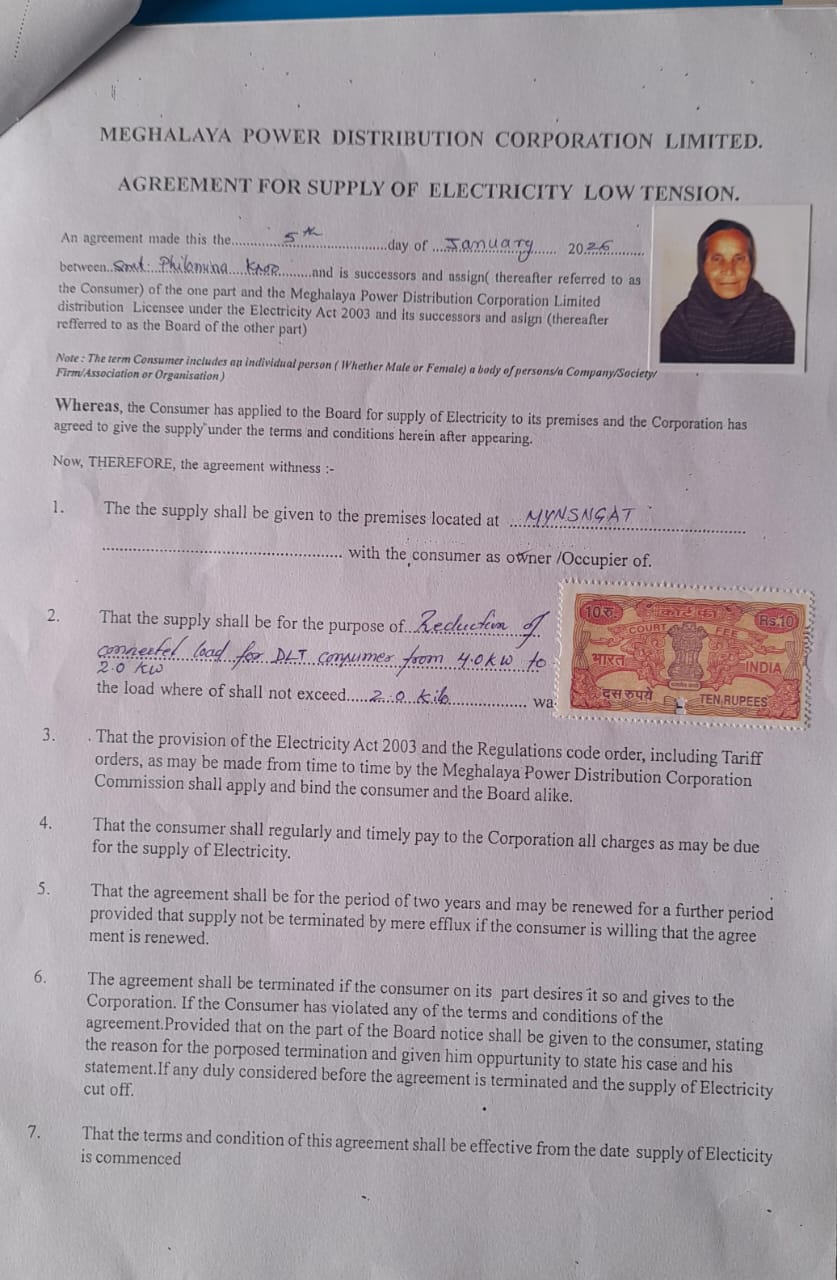 MEGHALAYA POWER DISTRIBUTION CORPORATION LIMITED.
AGREEMENT FOR SUPPLY OF ELECTRICITY LOW TENSION.
An agreement made this the....5th....day of ...January..... 20.26.........
between..Smt: Philomina....Knop........and is successors and assign( thereafter referred to as
the Consumer) of the one part and the Meghalaya Power Distribution Corporation Limited
distribution Licensee under the Electricity Act 2003 and its successors and asign (thereafter
refferred to as the Board of the other part)
Note : The term Consumer includes an individual person ( Whether Male or Female) a body of persons/a Company/Society/
Firm/Association or Organisation )
Whereas, the Consumer has applied to the Board for supply of Electricity to its premises and the Corporation has
agreed to give the supply under the terms and conditions herein after appearing.
Now, THEREFORE, the agreement withness :-
1. The the supply shall be given to the premises located at ...MYNSNGAT......
............................................. with the consumer as owner /Occupier of.
2. That the supply shall be for the purpose of..Reduction of
connected load for DLT consumer from 4.0 KW to
2.0 KW
the load where of shall not exceed.....2.0 kilo............... wa
10 रु. कोर्ट फीस Rs.10
COURT FEE
भारत INDIA
दस रुपये TEN RUPEES
3. . That the provision of the Electricity Act 2003 and the Regulations code order, including Tariff
orders, as may be made from time to time by the Meghalaya Power Distribution Corporation
Commission shall apply and bind the consumer and the Board alike.
4. That the consumer shall regularly and timely pay to the Corporation all charges as may be due
for the supply of Electricity.
5. That the agreement shall be for the period of two years and may be renewed for a further period
provided that supply not be terminated by mere efflux if the consumer is willing that the agree
ment is renewed.
6. The agreement shall be terminated if the consumer on its part desires it so and gives to the
Corporation. If the Consumer has violated any of the terms and conditions of the
agreement.Provided that on the part of the Board notice shall be given to the consumer, stating
the reason for the porposed termination and given him oppurtunity to state his case and his
statement.If any duly considered before the agreement is terminated and the supply of Electricity
cut off.
7. That the terms and condition of this agreement shall be effective from the date supply of Electicity
is commenced